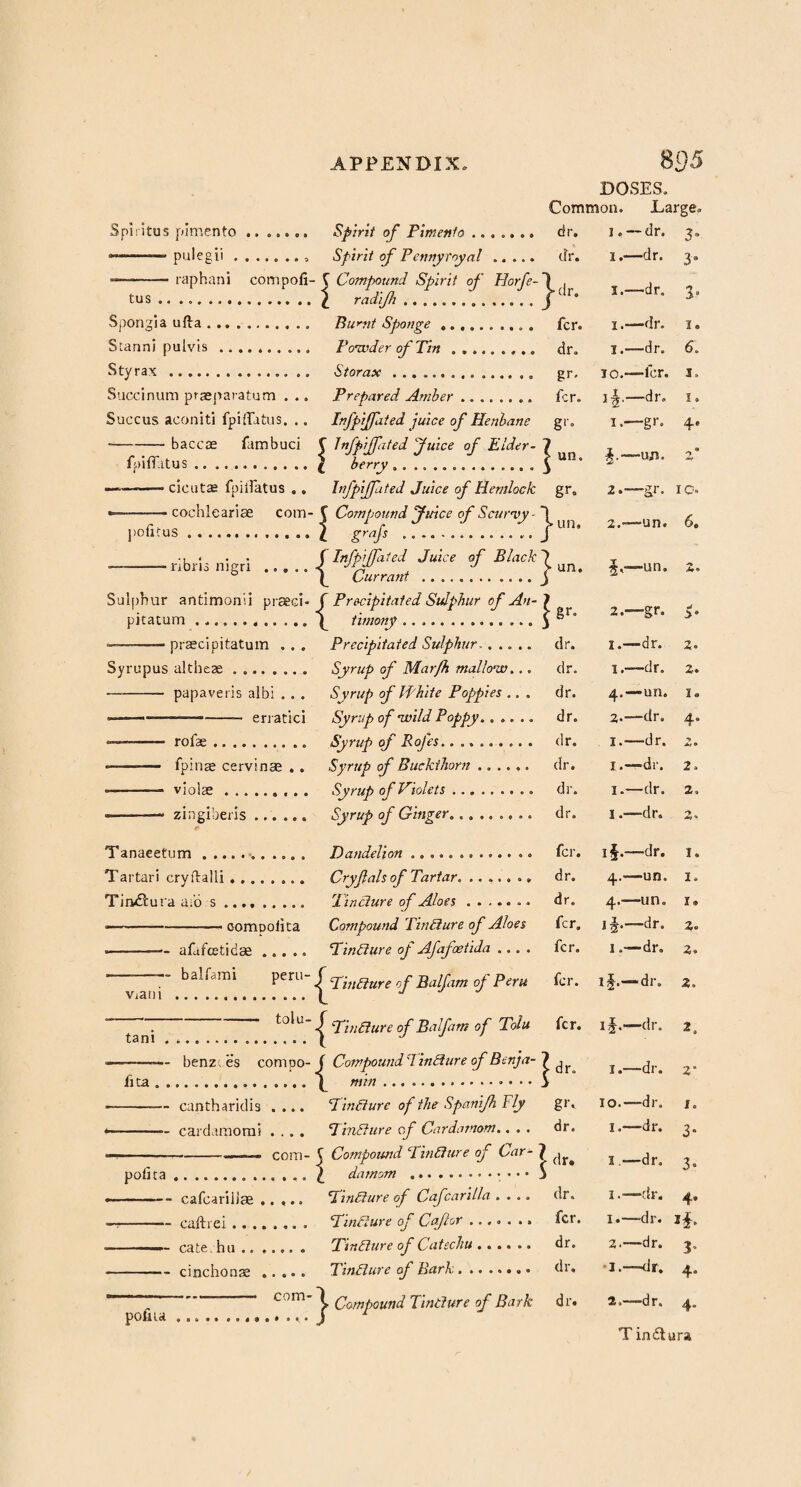 APPENDIX. 895
DOSES.
Common. Large.
Spiritus pimento ........ Spirit of Pimento ....... dr. 1.—dr. 3.
——— pulegii ........ Spirit of Pennyroyal ..... dr. 1.—dr. 3.
——— raphani compoſi- { Compound Spirit of Horſe- } dr. 1.—dr. 3.
tus .................. { radiſh .............. }
Spongia uſta ............ Burnt Sponge .......... ſcr. 1.—dr. 1.
Stanni pulvis .......... Powder of Tin ......... dr. 1.—dr. 6.
Styrax ............... Storax ............... gr. 10.—ſcr. 1.
Succinum præparatum ... Prepared Amber ........ ſcr. 1½.—dr. 1.
Succus aconiti ſpiſſatus. .. Inſpiſſated juice of Henbane gr. 1.—gr. 4.
——— baccæ ſambuci { Inſpiſſated Juice of Elder- } un. ½.—un. 2.
ſpiſſatus ............ { berry ................ }
——— cicutæ ſpiſſatus .. Inſpiſſated Juice of Hemlock gr. 2.—gr. 10.
——— cochleariæ com- { Compound Juice of Scurvy- } un. 2.—un. 6.
poſitus ............ { graſs ................ }
——— ribris nigri ..... { Inſpiſſated Juice of Black } un. ½.—un. 2.
{ Currant ............. }
Sulphur antimonii præci- { Precipitated Sulphur of An- } gr. 2.—gr. 5.
pitatum ............ { timony .............. }
——— præcipitatum ... Precipitated Sulphur ...... dr. 1.—dr. 2.
Syrupus altheæ ........ Syrup of Marſh mallow... dr. 1.—dr. 2.
——— papaveris albi ... Syrup of White Poppies ... dr. 4.—un. 1.
——— ——— erratici Syrup of wild Poppy...... dr. 2.—dr. 4.
——— roſæ .......... Syrup of Roſes.......... dr. 1.—dr. 2.
——— ſpinæ cervinæ .. Syrup of Buckthorn ...... dr. 1.—dr. 2.
——— violæ ......... Syrup of Violets ......... dr. 1.—dr. 2.
——— zingiberis ...... Syrup of Ginger......... dr. 1.—dr. 2.
Tanacetum ........... Dandelion ............. ſcr. 1½.—dr. 1.
Tartari cryſtalli ........ Cryſtals of Tartar. ....... dr. 4.—un. 1.
Tinctura alo s ......... Tincture of Aloes ....... dr. 4.—un. 1.
——— ——— compoſita Compound Tincture of Aloes ſcr. 1½.—dr. 2.
——— aſafœtidæ ..... Tincture of Aſafœtida .... ſcr. 1.—dr. 2.
——— balſami peru- { Tincture of Balſam of Peru ſcr. 1½.—dr. 2.
viani .............. {
——— ——— tolu- { Tincture of Balſam of Tolu ſcr. 1½.—dr. 2.
tani ............... {
——— benz es compo- { Compound Tincture of Benja- } dr. 1.—dr. 2.
ſita ................ { min ................ }
——— cantharidis .... Tincture of the Spaniſh Fly gr. 10.—dr. 1.
——— cardamomi .... Tincture of Cardamom.... dr. 1.—dr. 3.
——— ——— com- { Compound Tincture of Car- } dr. 1.—dr. 3.
poſita .............. { damom ............. }
——— caſcarillæ ..... Tincture of Caſcarilla .... dr. 1.—dr. 4.
——— caſtrei ........ Tincture of Caſtor ....... ſcr. 1.—dr. 1½.
——— cate hu ....... Tincture of Catechu ...... dr. 2.—dr. 3.
——— cinchonæ ..... Tincture of Bark ........ dr. 1.—dr. 4.
——— ——— com- } Compound Tincture of Bark dr. 2.—dr. 4.
poſita ............... }
Tinctura